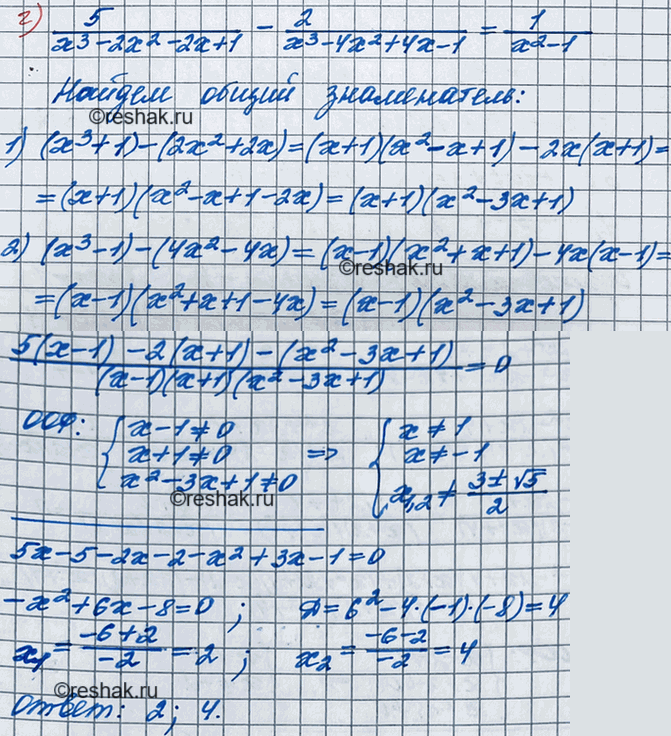 г) 5/(x³-2x²-2x+1) - 2/(x³-4x²+4x-1) = 1/(x²-1)
Найдем общий знаменатель:
©reshak.ru
1) (x³+1)-(2x²+2x)=(x+1)(x²-x+1)-2x(x+1)=
=(x+1)(x²-x+1-2x)=(x+1)(x²-3x+1)
2) (x³-1)-(4x²-4x)=(x-1)(x²+x+1)-4x(x-1)=
©reshak.ru
=(x-1)(x²+x+1-4x)=(x-1)(x²-3x+1)
(5(x-1)-2(x+1)-(x²-3x+1))/((x-1)(x+1)(x²-3x+1))=0
ООФ: { x-1≠0 => { x≠1
x+1≠0 x≠-1
x²-3x+1≠0 x₁,₂≠(3±√5)/2
©reshak.ru
5x-5-2x-2-x²+3x-1=0
-x²+6x-8=0; D=6²-4·(-1)·(-8)=4
x₁=(-6+2)/(-2)=2; x₂=(-6-2)/(-2)=4
©reshak.ru
Ответ: 2; 4.